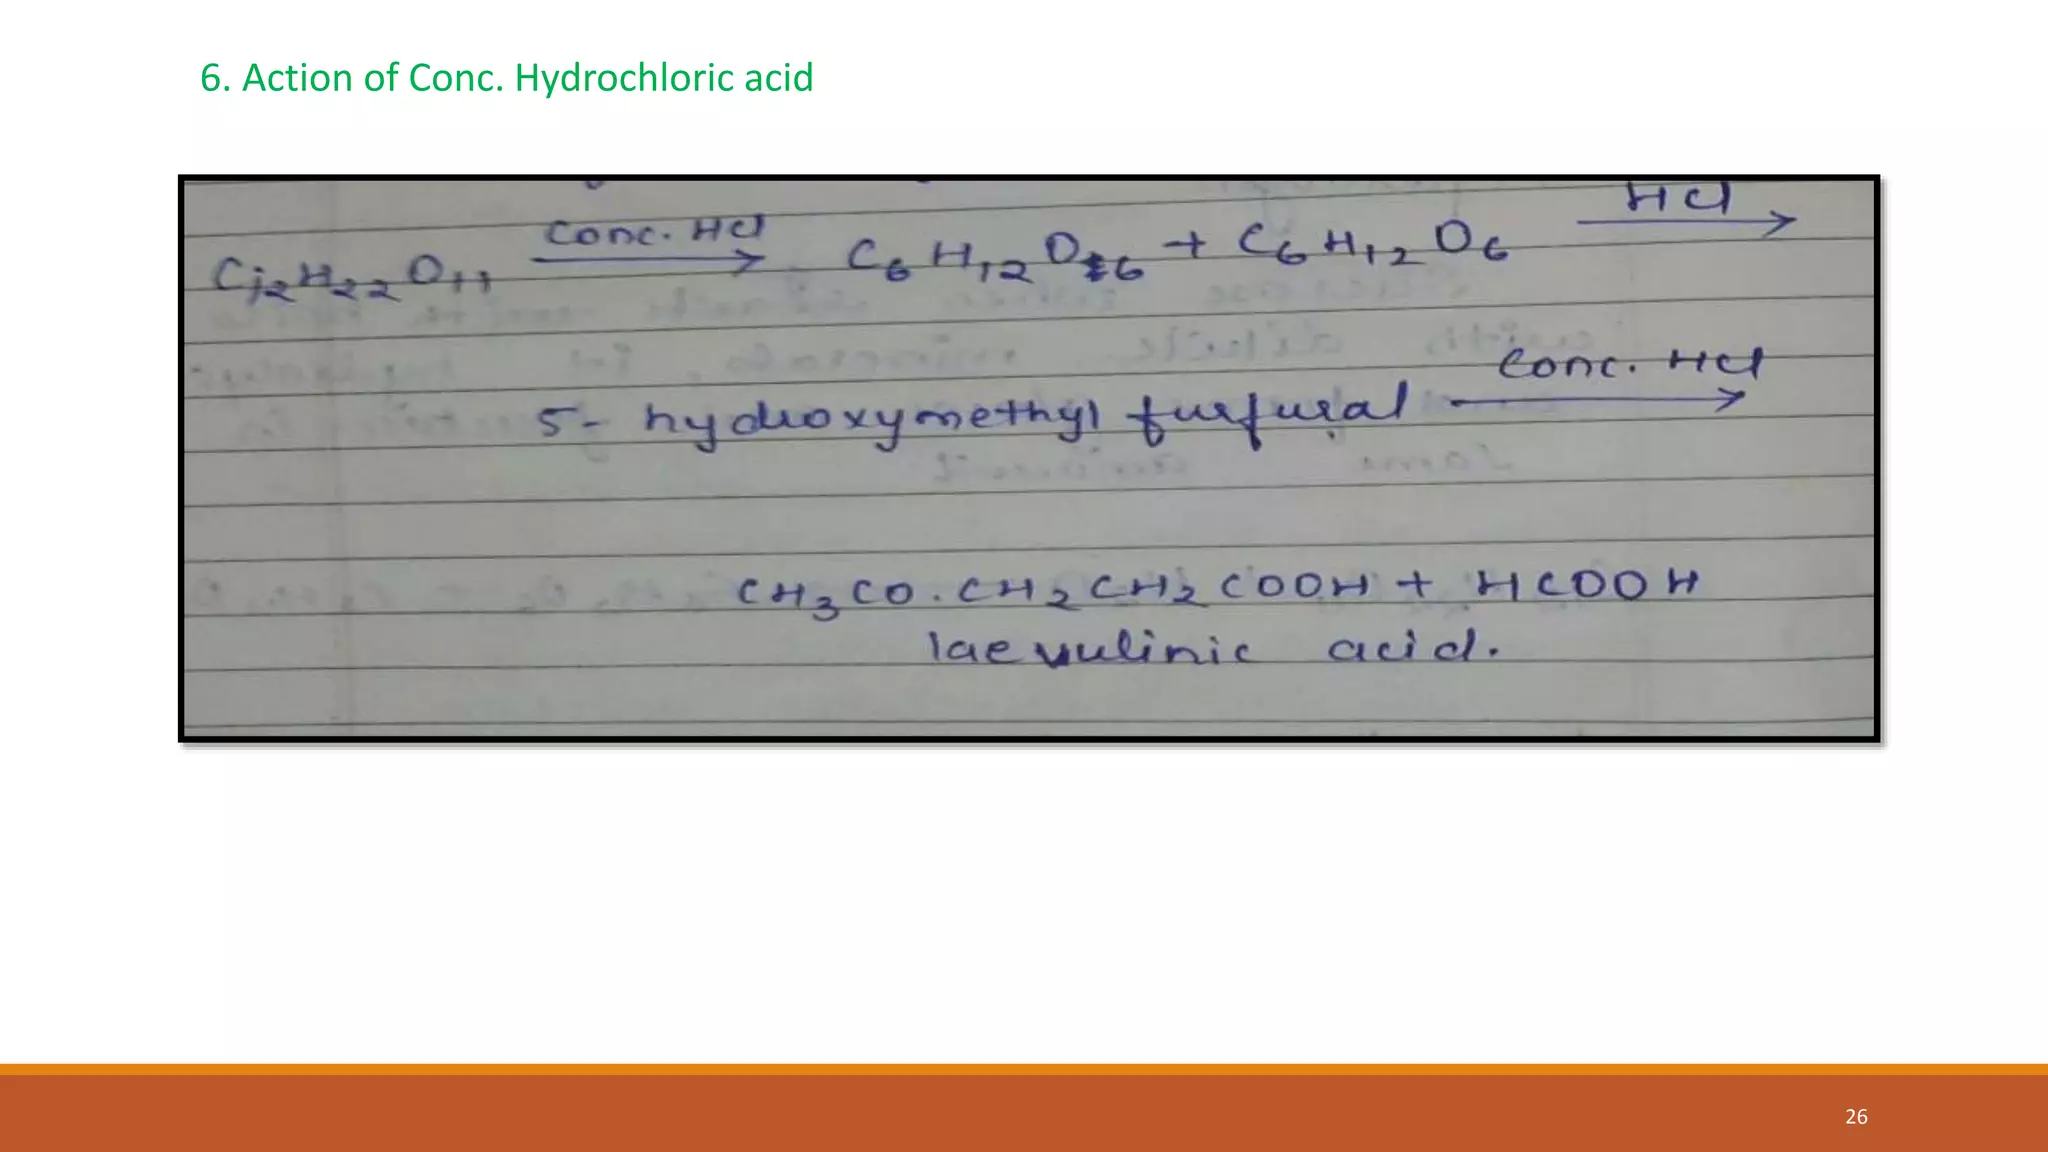 6. Action of Conc. Hydrochloric acid
C₁₂H₂₂O₁₁ Conc. HCl → C₆H₁₂O₆ + C₆H₁₂O₆ HCl →
5- hydroxymethyl furfural Conc. HCl →
CH₃CO.CH₂CH₂COOH + HCOOH
laevulinic acid.
26